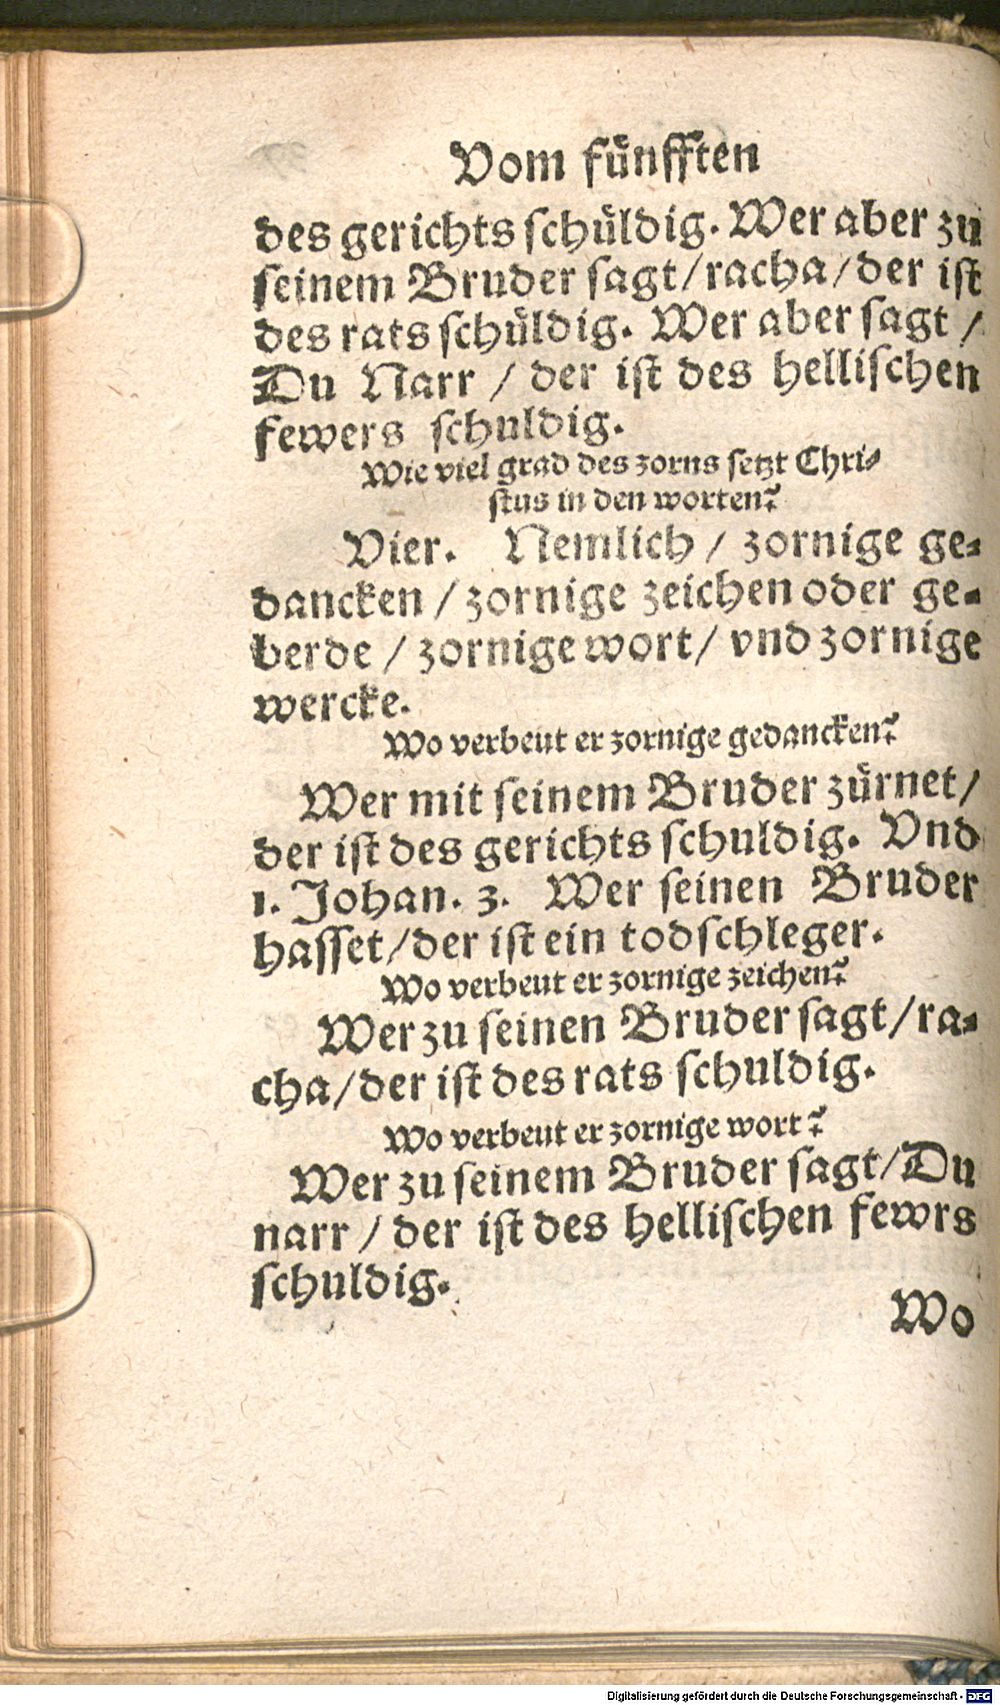 Vom fünfften
des gerichts schüldig. Wer aber zu
seinem Bruder sagt/racha/der ist
des rats schüldig. Wer aber sagt /
Du Narr / der ist des hellischen
fewers schuldig.
Wie viel grad des zorns setzt Chri-
stus in den worten?
Vier. Nemlich / zornige ge-
dancken / zornige zeichen oder ge-
berde / zornige wort/ vnd zornige
wercke.
Wo verbeut er zornige gedancken?
Wer mit seinem Bruder zürnet/
der ist des gerichts schuldig. Vnd
1. Johan. 3. Wer seinen Bruder
hasset/der ist ein todschleger.
Wo verbeut er zornige zeichen?
Wer zu seinen Bruder sagt/ra-
cha/der ist des rats schuldig.
Wo verbeut er zornige wort?
Wer zu seinem Bruder sagt/Du
narr / der ist des hellischen fewrs
schuldig.
Wo
Digitalisierung gefördert durch die Deutsche Forschungsgemeinschaft - DFG